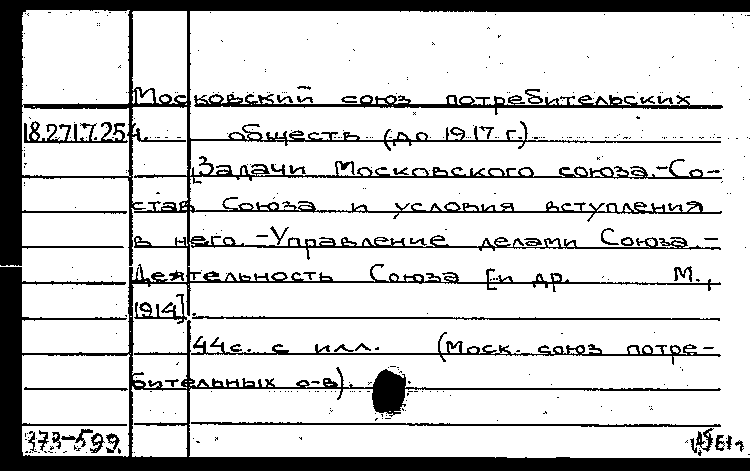 Московский союз потребительских
18.271.7.254. обществ (до 1917 г.).
[Задачи Московского союза.-Со-
став Союза и условия вступления
в него.-Управление делами Союза.-
Деятельность Союза [и др. М.,
1914].
44с. с илл. (Моск. союз потре-
бительных о-в).
373-599.